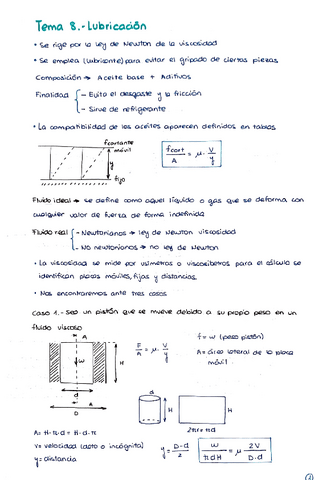 Tema 8.- Lubricación
• Se rige por la ley de Newton de la viscosidad
• Se emplea (lubricante) para evitar el gripado de ciertas piezas
Composición → Aceite base + Aditivos
Finalidad
- Evita el desgaste y la fricción
- Sirve de refrigerante
• La compatibilidad de los aceites aparecen definidos en tablas
fcortante
móvil
y
fijo
fcort/A = μ · V/y
Fluido ideal → se define como aquel líquido o gas que se deforma con
cualquier valor de fuerza de forma indefinida
Fluido real
- Newtonianos → ley de Newton viscosidad
- No newtonianos → no ley de Newton
• La viscosidad se mide por
para el cálculo se
identifican placas móviles, fijas y distancias.
• Nos encontraremos ante tres casos
Caso 1.- Sea un pistón que se mueve debido a su propio peso en un
fluido viscoso
A
w
H
d
D
F/A = μ · V/y
f = w (peso pistón)
A = área lateral de la placa
móvil
d
H
H
2πr = πd
A = H·π·d = H·d·π
v = velocidad (dato o incógnita)
y = distancia
y = D-d/2
w/πdH = μ 2V/D-d